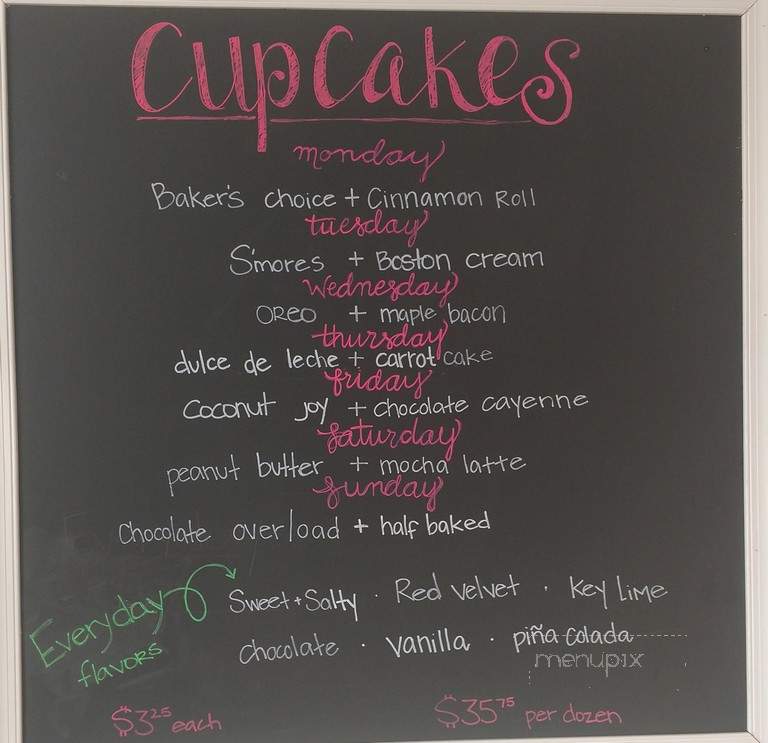 Cupcakes
monday
Baker's choice + Cinnamon Roll
tuesday
S'mores + Boston cream
Wednesday
OREO + maple bacon
thursday
dulce de leche + carrot cake
friday
Coconut Joy + chocolate cayenne
saturday
peanut butter + mocha latte
sunday
Chocolate overload + half baked
Everyday flavors
Sweet + Salty · Red velvet · Key Lime
chocolate · vanilla · piña colada
menupix
$3.25 each $35.75 per dozen